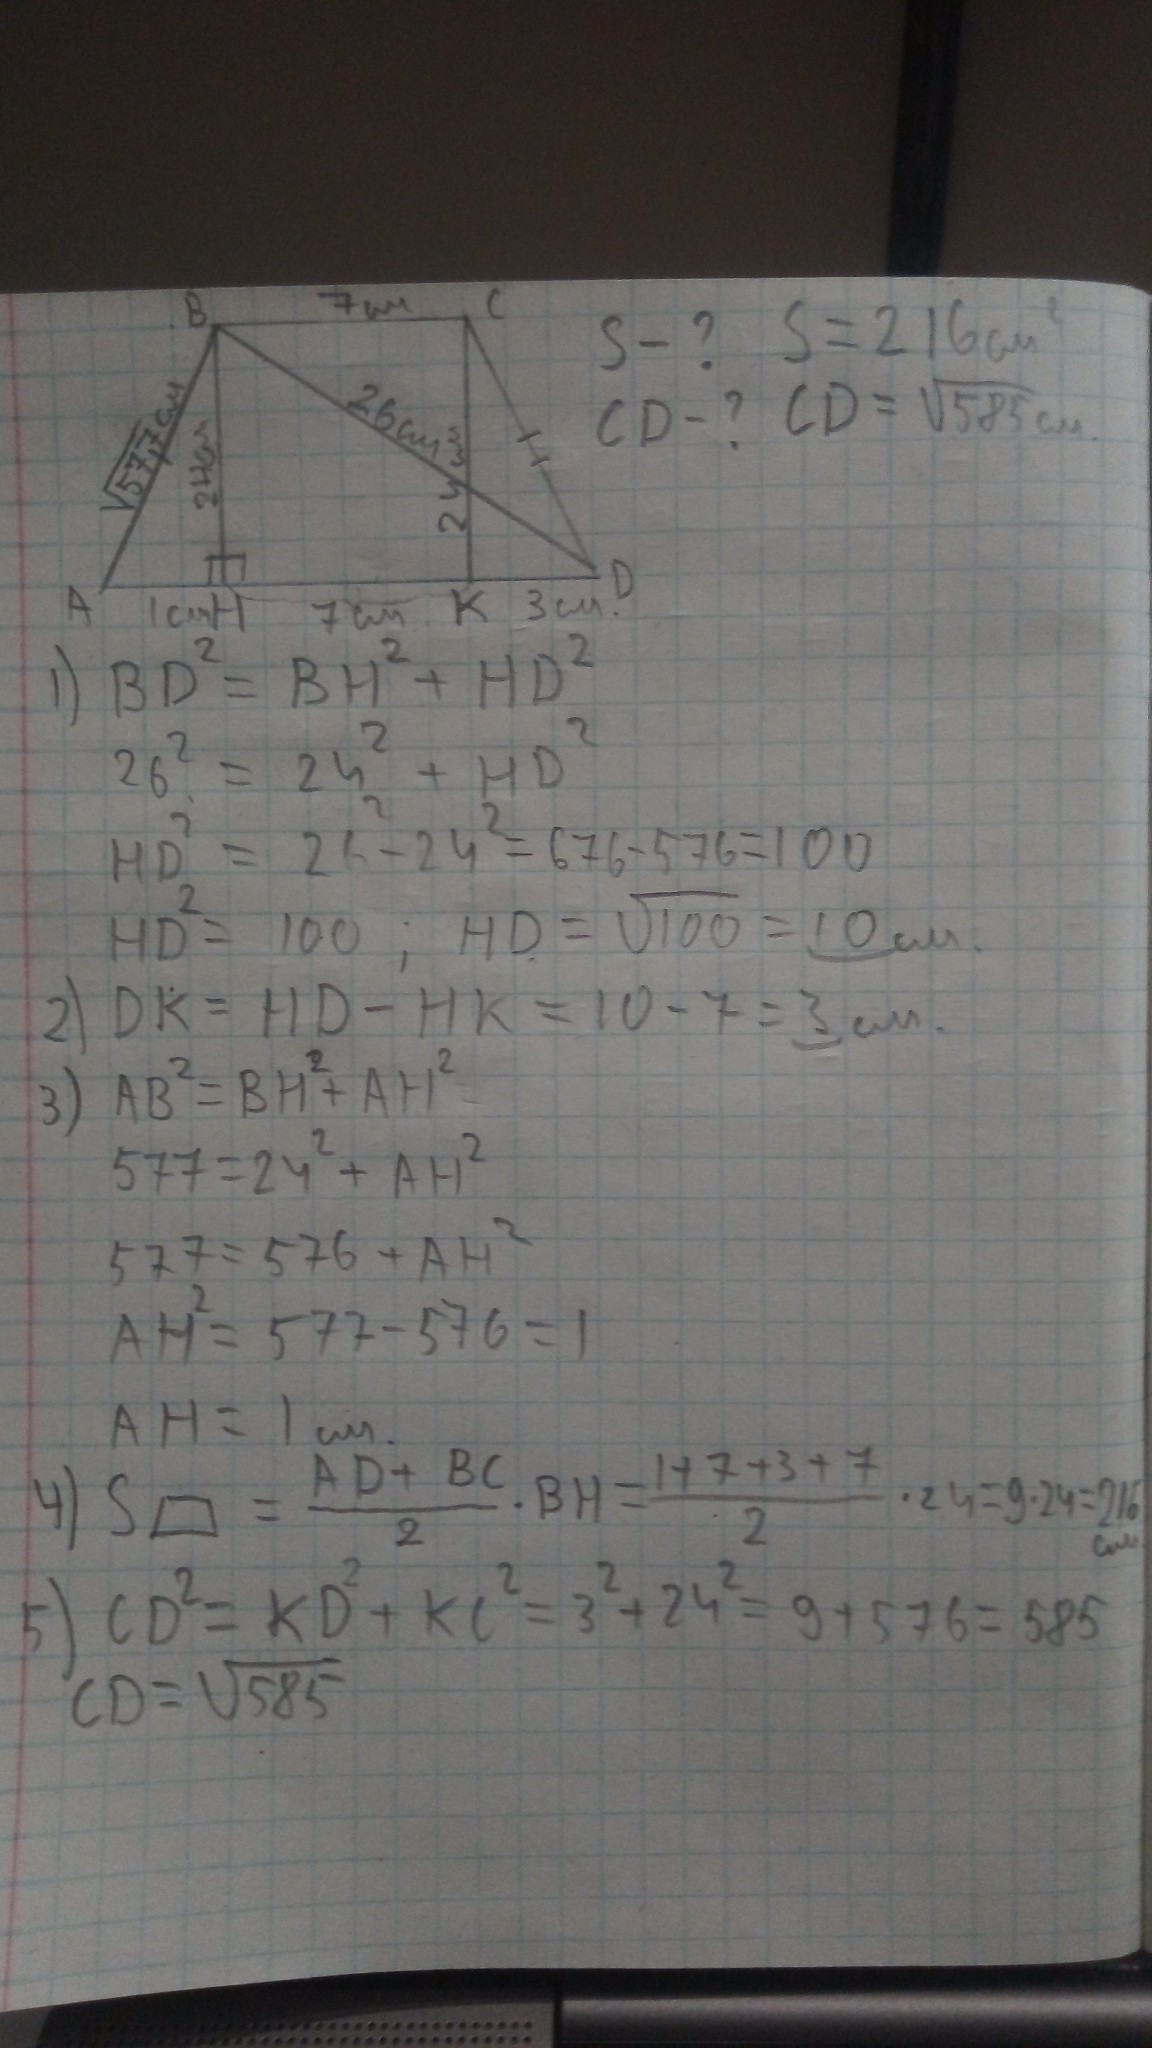 B 7см C
S - ? S = 216 см²
CD - ? CD = √585 см.
√577 см
24 см
26 см
24 см
A 1 см H 7см K 3 см. D
1) BD² = BH² + HD²
26² = 24² + HD²
HD² = 26² - 24² = 676 - 576 = 100
HD² = 100 ; HD = √100 = 10 см.
2) DK = HD - HK = 10 - 7 = 3 см.
3) AB² = BH² + AH²
577 = 24² + AH²
577 = 576 + AH²
AH² = 577 - 576 = 1
AH = 1 см.
4) S = (AD + BC)/2 · BH = (1+7+3+7)/2 · 24 = 9·24 = 216 см
5) CD² = KD² + KC² = 3² + 24² = 9 + 576 = 585
CD = √585